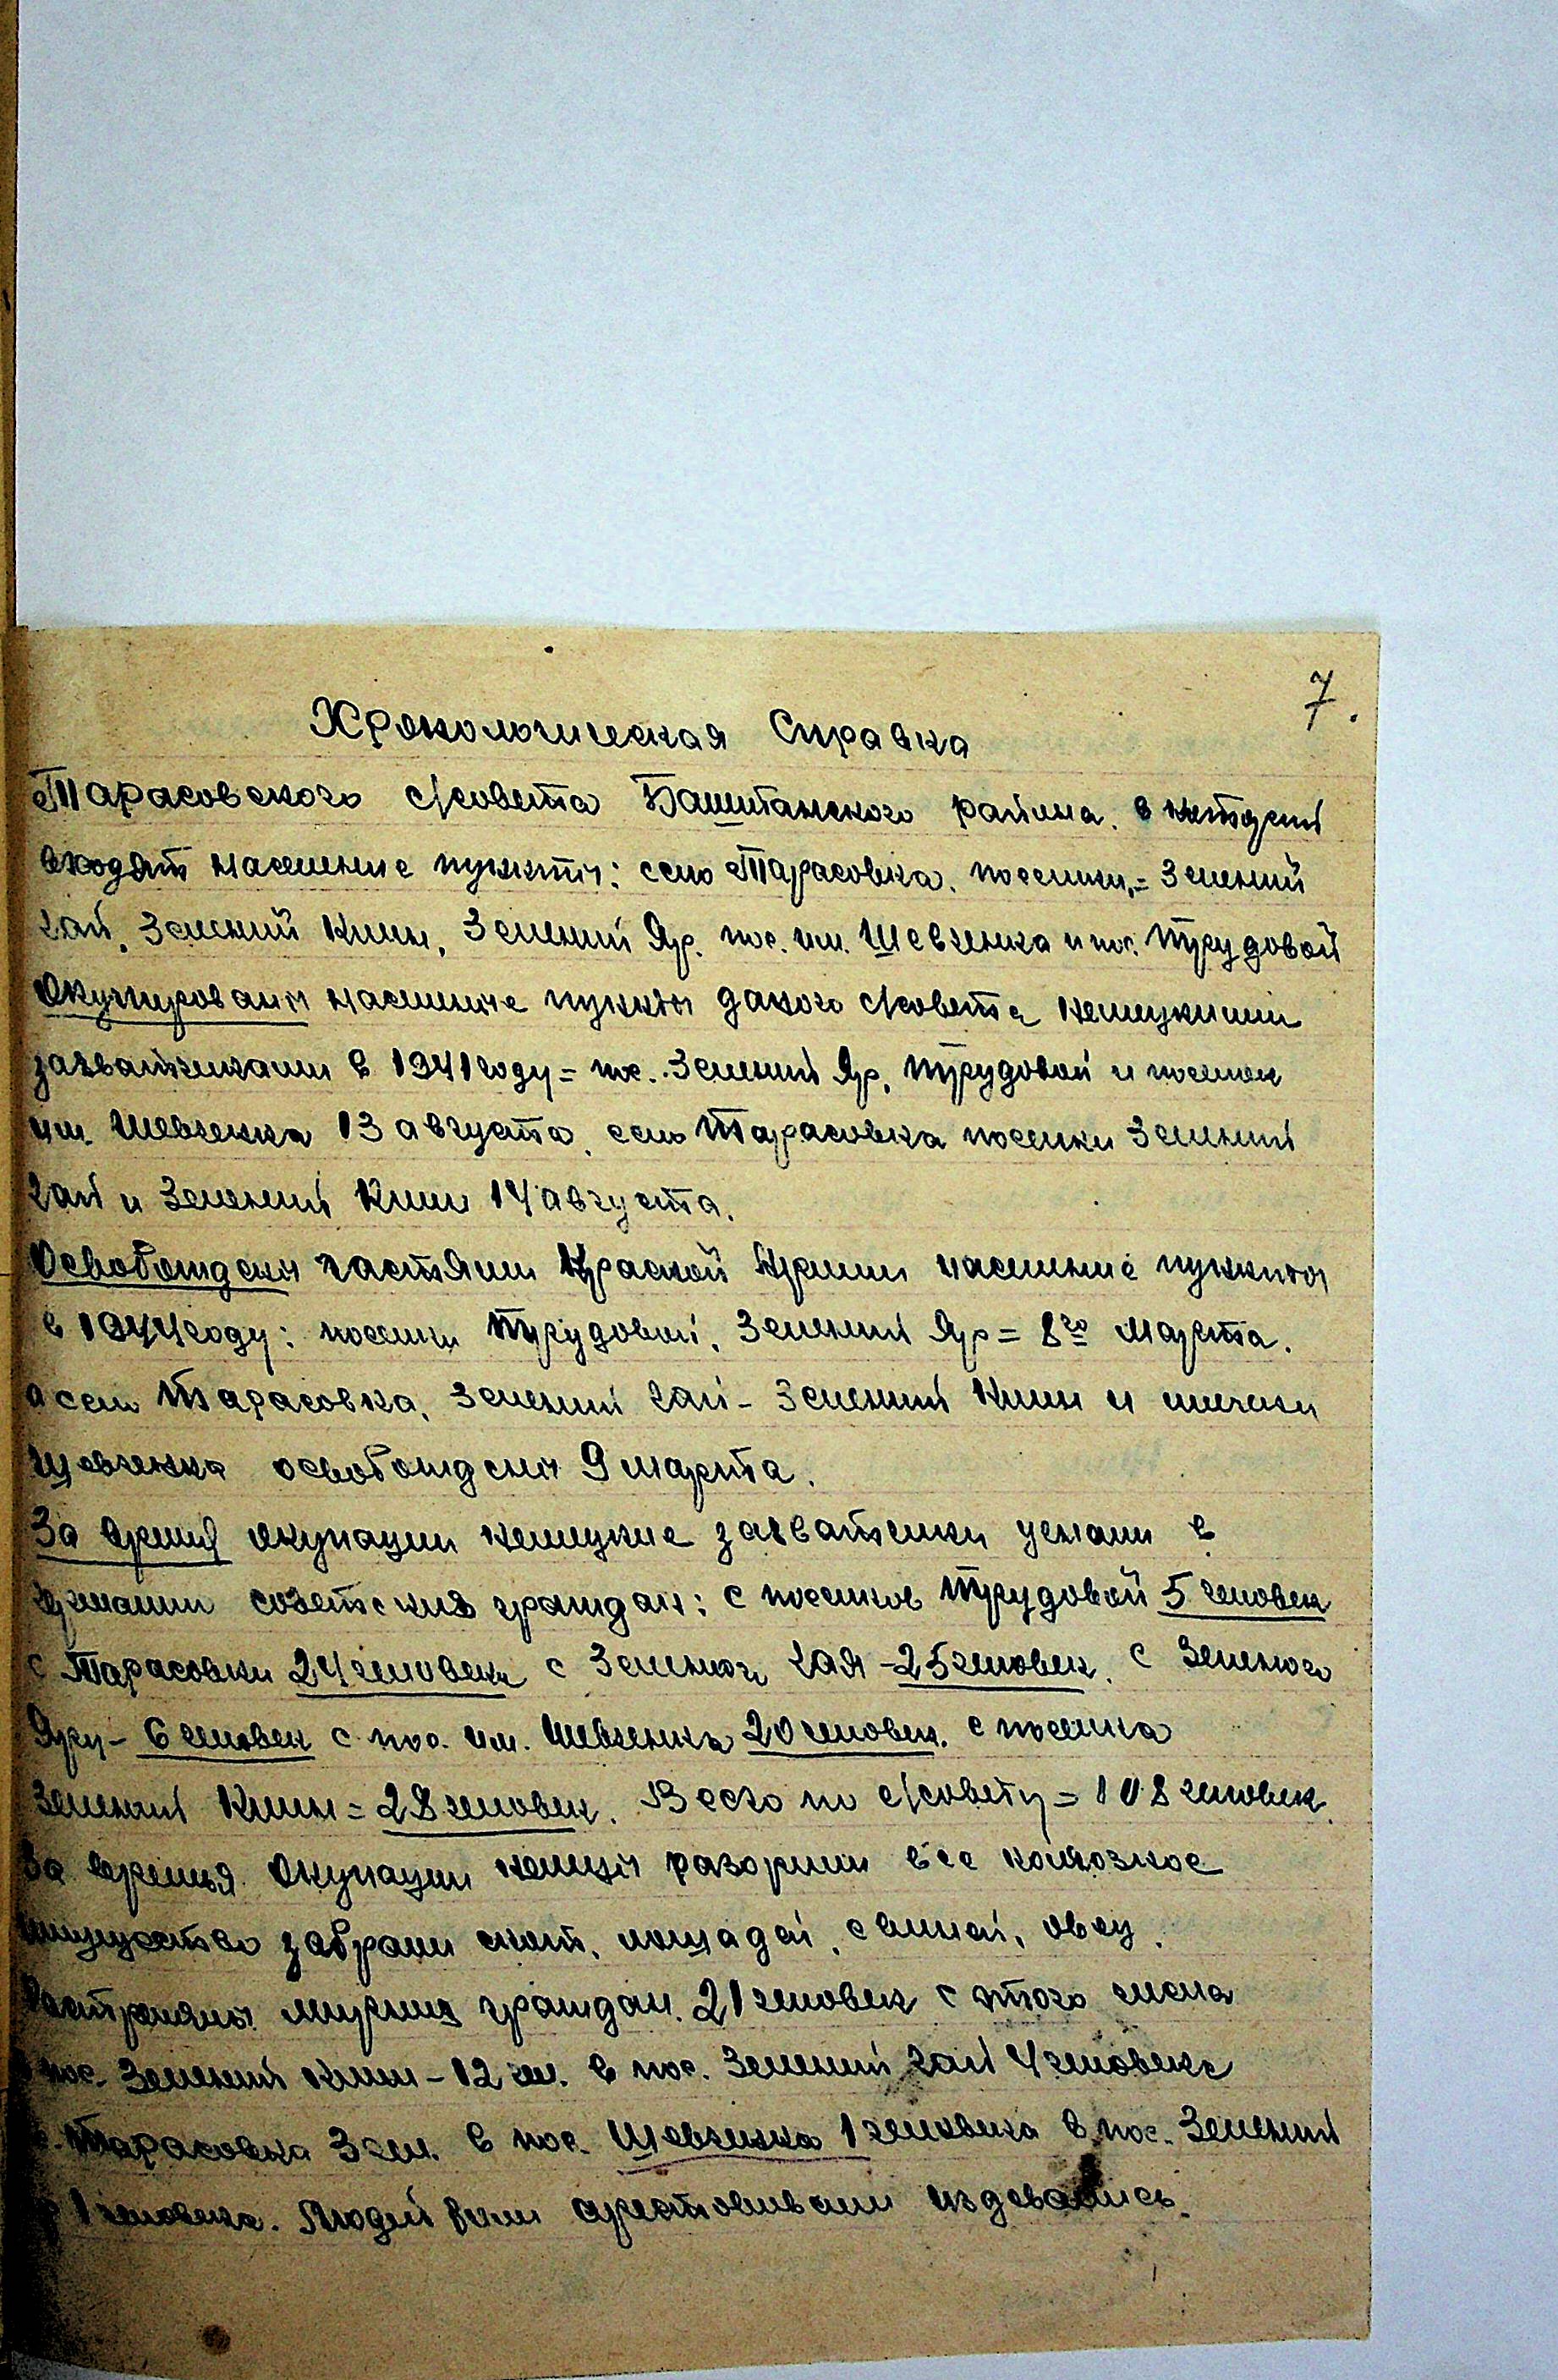 7.
Хронологическая Справка
Тарасовского с/совета Баштанского района. в который
входят население пункты: село Тарасовка. поселки,= Зеленый
Гай, Зелений Клин, Зелений Яр. пос. им. Шевченка и пос. Трудовой
Окупировани население пункты даного с/совета немецкими
захватчиками в 1941 году = пос. Зелений Яр, Трудовой и поселок
им. Шевченка 13 августа, село Тарасовка поселки Зелений
Гай и Зелений Клин 14 августа.
Освобождены частями Красной Армии население пункты
в 1944 году: поселки Трудовой, Зелений Яр = 8го Марта.
а село Тарасовка, Зелений Гай - Зелений Клин и
Шевченка освобождены 9 марта.
За время окупации немецкие захватчики угнали в
германии советских граждан: с поселков Трудовой 5 человек
с Тарасовки 24 человек с Зеленого Гая - 25 человек. с Зеленого
Яру - 6 человек с пос. им. Шевченка 20 человек. с поселка
Зелений Клин = 28 человек. Всего по с/совету = 108 человек.
За время окупации немцы разорили все колхозное
имущество забрали скот, лошадей, свиней, овец.
Растреляны мирных граждан. 21 человек с этого числа
пос. Зелений Клин - 12 чел. в пос. Зелений Гай 4 человека
Тарасовка 3 чел. в пос. Шевченка 1 человека в пос. Зелений
1 человека. Людей били арестовивали издевались.